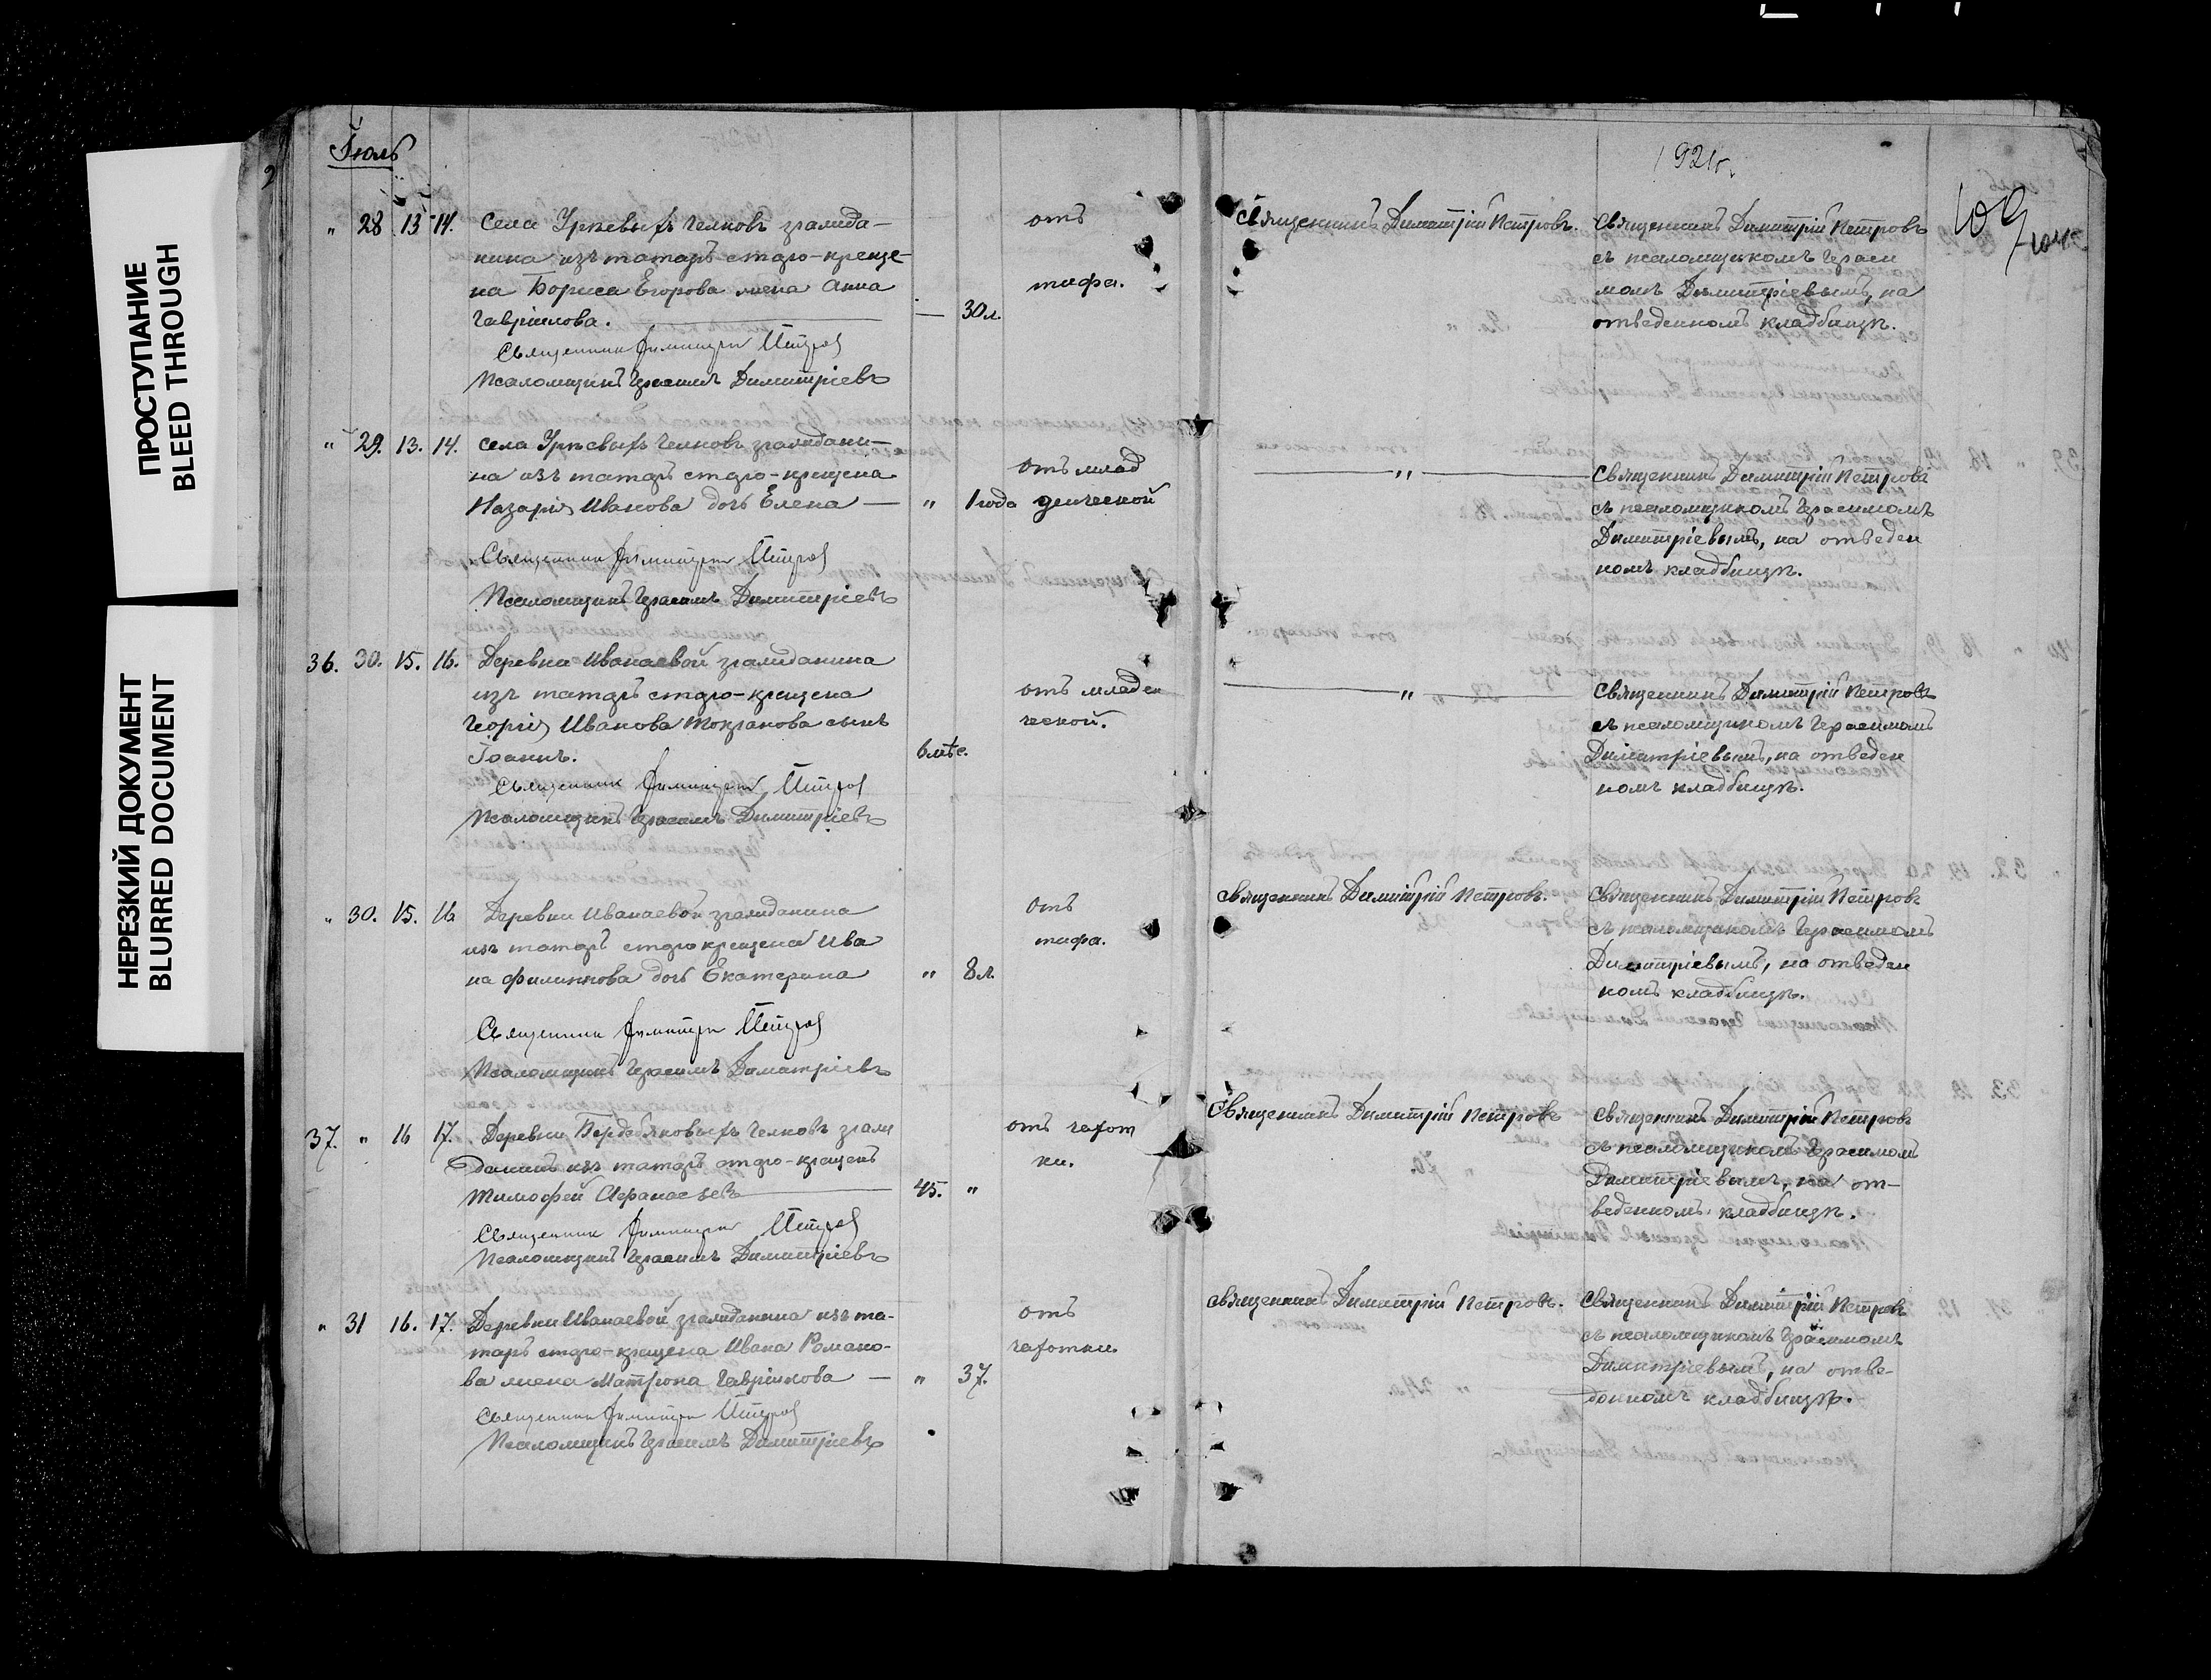 ПРОСТУПАНИЕ
BLEED THROUGH
НЕРЕЗКИЙ ДОКУМЕНТ
BLURRED DOCUMENT
Іюль
1921г.
109
" 28 13 14. Села Урѣевыхъ Челновъ гражда-
нина изъ татаръ старо-креще-
на Бориса Егорова жена Анна
Гавріилова. — 30 л.
отъ
тифа.
Священникъ Димитрій Петровъ
Псаломщикъ Герасимъ Димитріевъ
Священникъ Димитрій Петровъ.
Священникъ Димитрій Петровъ
съ псаломщикомъ Гераси
момъ Димитріевымъ, на
отведенномъ кладбищѣ.
" 29. 13. 14. Села Урѣевыхъ Челновъ граждани-
на изъ татаръ старо-крещена
Назарія Иванова дочь Елена — " 1 года
отъ млад
енческой
Священникъ Димитрій Петровъ
Псаломщикъ Герасимъ Димитріевъ
— " —
Священникъ Димитрій Петровъ
съ псаломщикомъ Герасимомъ
Димитріевымъ, на отведен
номъ кладбищѣ.
36. 30. 15. 16. Деревни Иванаевой гражданина
изъ татаръ старо-крещена
Георгія Иванова Мокранова сынъ
Іоаннъ. 6 мѣс.
отъ младен
ческой.
Священникъ Димитрій Петровъ
Псаломщикъ Герасимъ Димитріевъ
— " —
Священникъ Димитрій Петровъ
съ псаломщикомъ Герасимомъ
Димитріевымъ, на отведен
номъ кладбищѣ.
" 30. 15. 16 Деревни Иванаевой гражданина
изъ татаръ старо крещена Ива
на Филиппова дочь Екатерина " 8 л.
отъ
тифа.
Священникъ Димитрій Петровъ
Псаломщикъ Герасимъ Димитріевъ
Священникъ Димитрій Петровъ.
Священникъ Димитрій Петровъ
съ псаломщикомъ Герасимомъ
Димитріевымъ, на отведен
номъ кладбищѣ.
37. " 16 17. Деревни Бердебяковыхъ Челновъ граж
данинъ изъ татаръ старо-крещенъ
Тимофей Афанасьевъ — 45. "
отъ чахот
ки.
Священникъ Димитрій Петровъ
Псаломщикъ Герасимъ Димитріевъ
Священникъ Димитрій Петровъ
Священникъ Димитрій Петровъ
съ псаломщикомъ Герасимомъ
Димитріевымъ, на от-
веденномъ кладбищѣ.
" 31 16. 17. Деревни Иванаевой гражданина изъ та-
таръ старо-крещена Ивана Романо-
ва жена Матрона Гавріилова — " 37.
отъ
чахотки
Священникъ Димитрій Петровъ
Псаломщикъ Герасимъ Димитріевъ
Священникъ Димитрій Петровъ.
Священникъ Димитрій Петровъ
съ псаломщикомъ Герасимомъ
Димитріевымъ, на отве-
денномъ кладбищѣ.